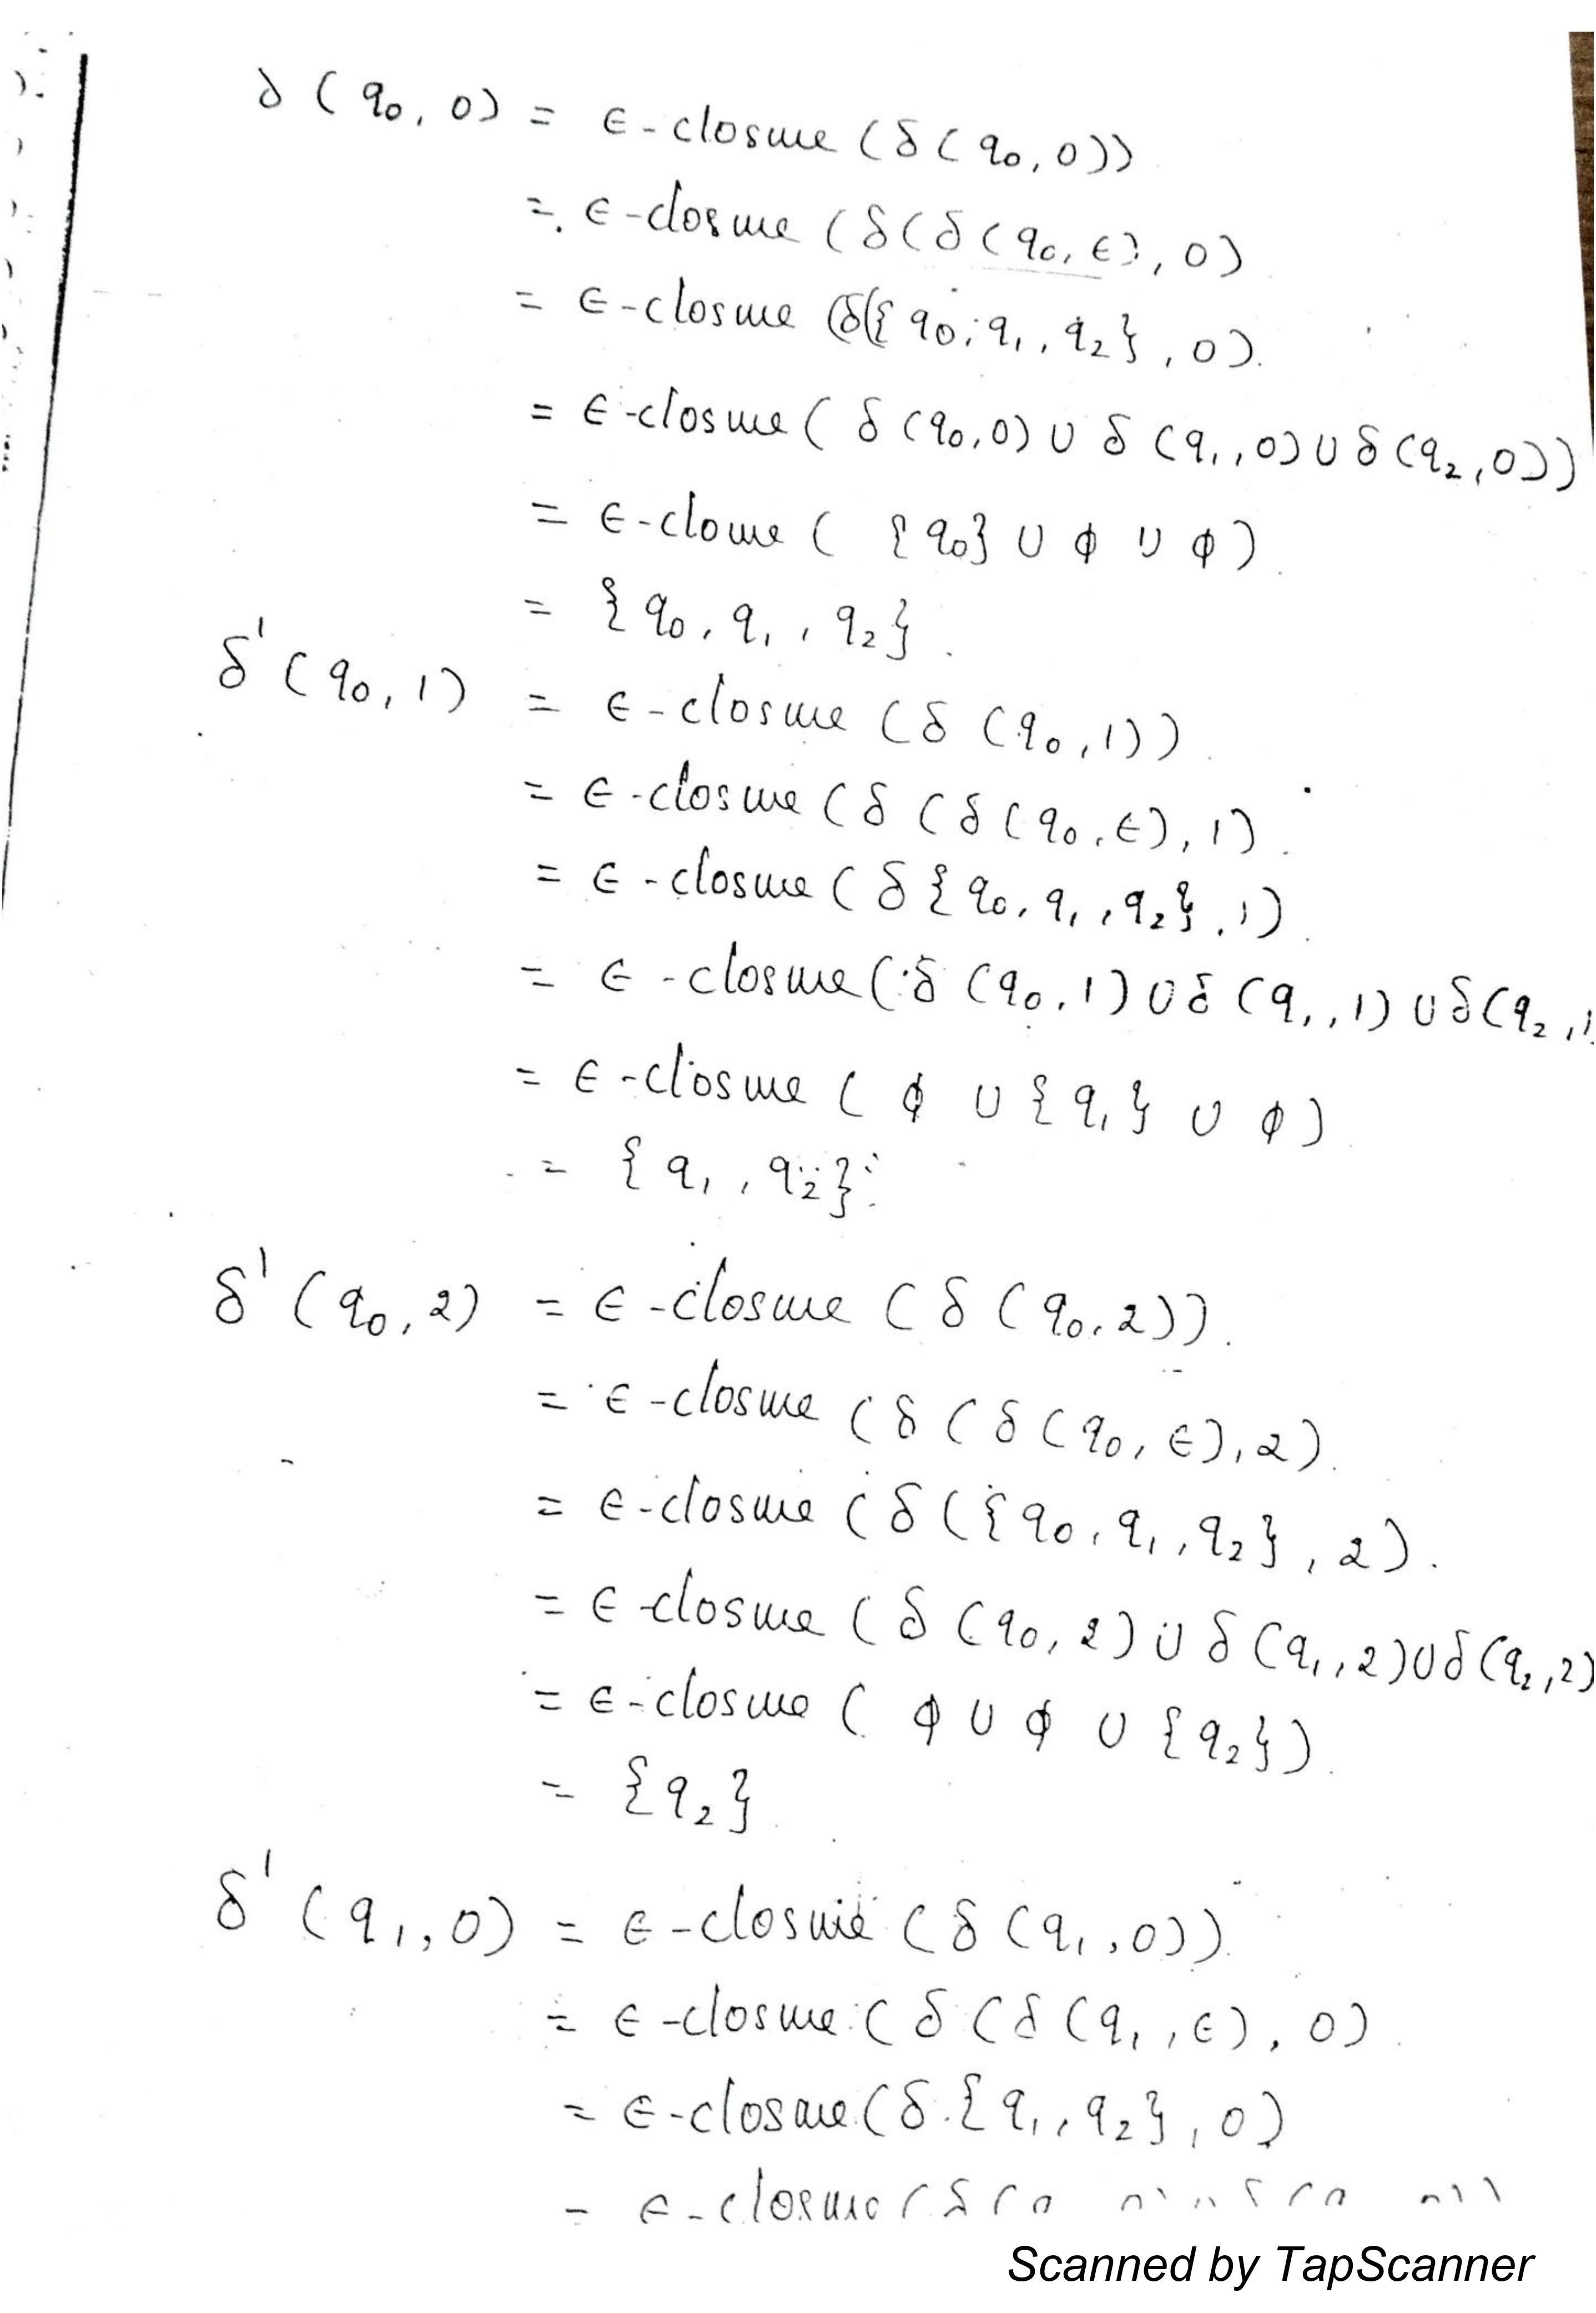 δ ( q₀, 0) = ϵ - closure (δ ( q₀, 0))
=. ϵ - closure ( δ( δ ( q₀, ϵ), 0)
= ϵ - closure (δ({ q₀, q₁, q₂}, 0).
= ϵ - closure ( δ (q₀,0) ∪ δ (q₁,0) ∪ δ (q₂,0))
= ϵ - cloure ( {q₀} ∪ ϕ ∪ ϕ)
= {q₀, q₁, q₂}.
δ' ( q₀, 1) = ϵ - closure (δ ( q₀, 1)).
= ϵ - closure ( δ ( δ ( q₀, ϵ), 1).
= ϵ - closure ( δ { q₀, q₁, q₂}, 1).
= ϵ - closure ( δ (q₀, 1) ∪ δ (q₁, 1) ∪ δ(q₂, 1
= ϵ - closure ( ϕ ∪ {q₁} ∪ ϕ)
= { q₁, q₂}
δ' ( q₀, 2) = ϵ - closure ( δ ( q₀, 2)).
= ϵ - closure ( δ ( δ ( q₀, ϵ), 2).
= ϵ - closure ( δ ({ q₀, q₁, q₂}, 2).
= ϵ - closure ( δ (q₀, 2) ∪ δ (q₁, 2) ∪ δ (q₂, 2)
= ϵ - closure ( ϕ ∪ ϕ ∪ {q₂}).
= {q₂}
δ' ( q₁, 0) = ϵ - closure ( δ ( q₁, 0)).
= ϵ - closure ( δ ( δ ( q₁, ϵ), 0).
= ϵ - closure ( δ { q₁, q₂}, 0)
= ϵ - closure ( δ (
Scanned by TapScanner